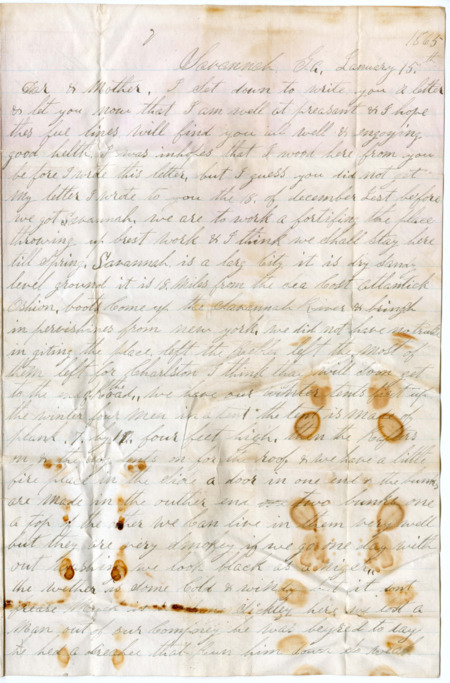 1865
Savannah Ga. January 15th
Dear & Mother. I set down to write you a letter
& let you now that I am well at preasant & I hope
thes few lines will find you all well & enjoying
good helth I was inhopes that I wood here from you
before I wrote this letter, but I guess you did not git
My letter I wrote to you the 15. of december Last before
we got Savannah, we are to work a fortifing the place
throwing up brest work & I think we shall stay here
till spring. Savannah is a large City it is dry sandy
level ground it is 18 Miles from the sea cost Atlantick
Oshion, boots Come up the Savannah River & bringh
in pervishenes from new york, we did not have no truble
in giting the place, left the most of
them left for Charlston I think they will Som get
to the end road, we have our winter tents put up
the winter four men in a tent the tent is Made of
plank. by four feet high. then the
on for the roof & we have a little
fire place in the side a door in one end & the bunks
are made in the outher end two bunks one
a top of the other we can live in them very well
but they are very smokey if we go one day with
out washing we look black as a
the wether is some Cold & windy but it ent
Sickley here we lost a
Man out of our Compney he was beryed to day
he had a that him down